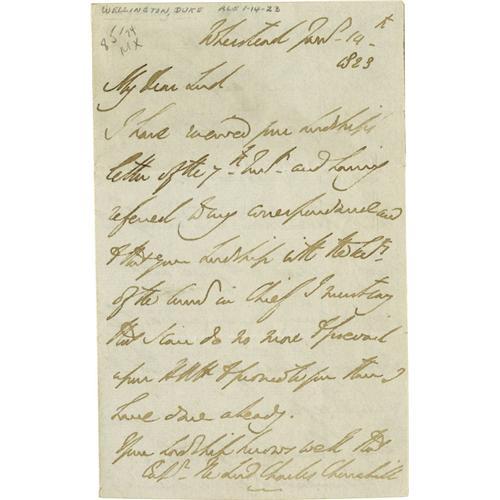 WELLINGTON, DUKE ALS 1-14-23
85/74
MX
Wherstead Jany. 14th
1823
My Dear Lord
I have received your Lordship's
letter of the 7th Inst. and having
referred to my correspondence and
to that your Lordship with the Secy.
of the Comd. in Chief I must say
that I can do no more to prevail
upon HRH to promote you than I
have done already.
Your Lordship knows well that
Capt. The Lord Charles Churchill